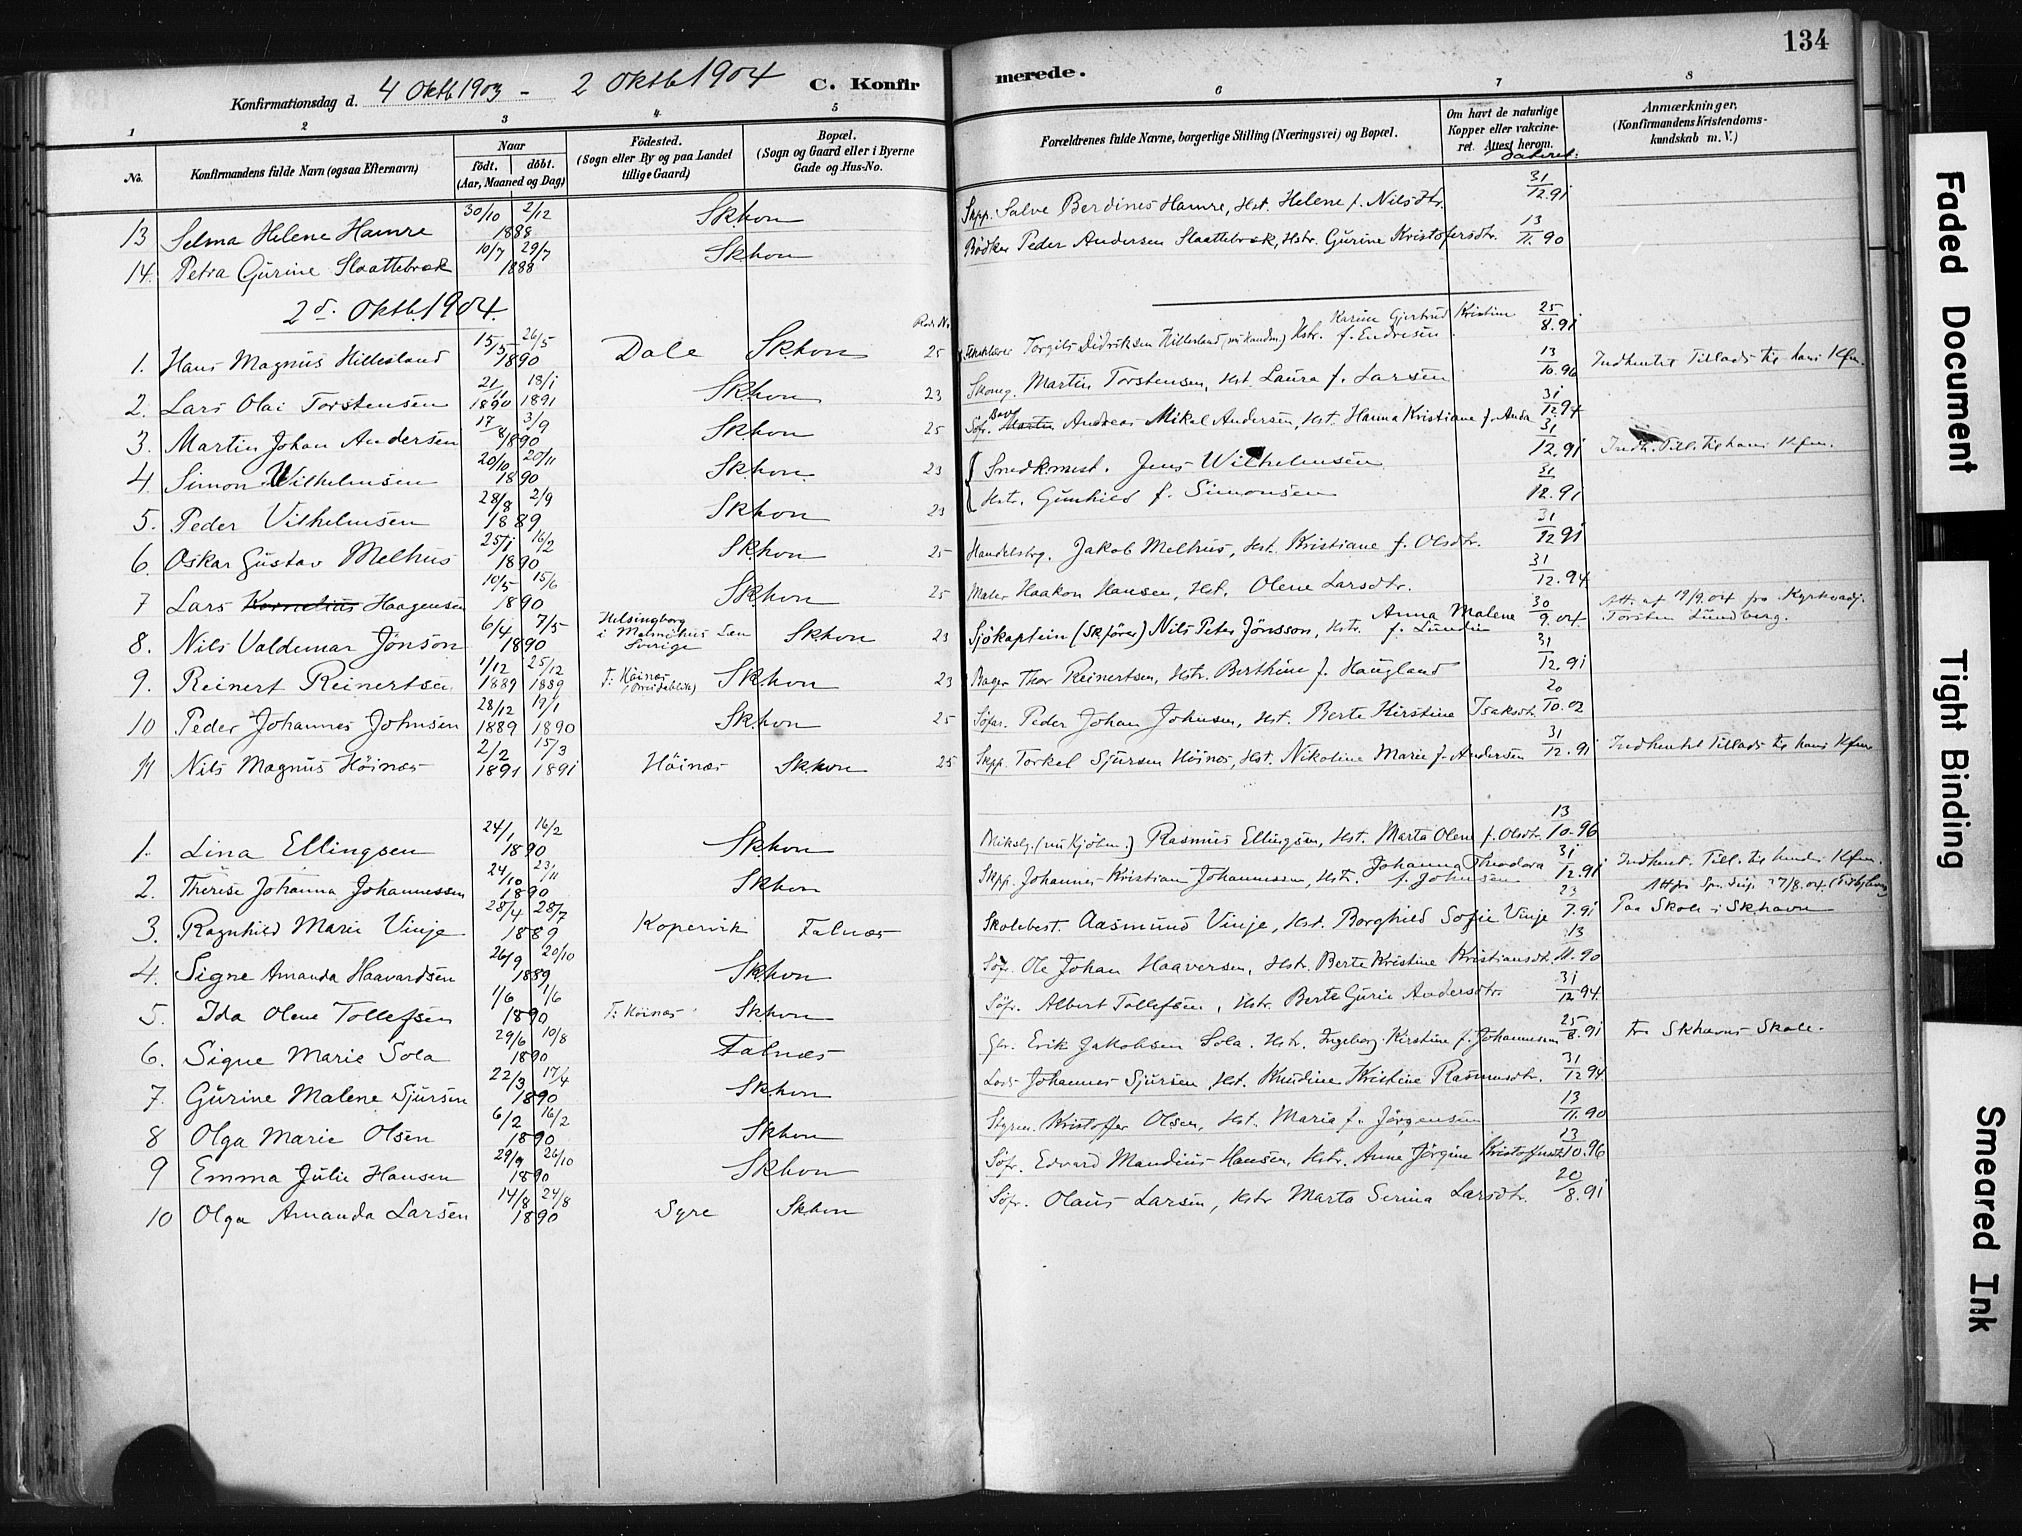 134
Konfirmationsdag d. 4 Oktb 1903 - 2 Oktb 1904 C. Konfirmerede.
1 2 3 4 5 6 7 8
No. Konfirmandens fulde Navn (ogsaa Efternavn) Naar født. døbt. (Aar, Maaned og Dag) Fødested. (Sogn eller By og paa Landet tillige Gaard) Bopæl. (Sogn og Gaard eller i Byerne Gade og Hus-No. Forældrenes fulde Navne, borgerlige Stilling (Næringsvei) og Bopæl. Om havt de naturlige Kopper eller vakcineret. Attest herom. Dateret: Anmærkninger, (Konfirmandens Kristendomskundskab m. V.)
13 Selma Helene Hamre 30/10 2/12 1888 Skhvn Skpp. Salve Berdines Hamre, Hst. Helene f. Nilsdtr. 31/12.91
14. Petra Gurine Slaattebræk 10/7 29/7 1888 Skhvn Bødker Peder Andersen Slaattebræk, Hstr. Gurine Kristofersdtr. 13/11.90
2d. Oktb. 1904.
1. Hans Magnus Hillesland 15/5 26/5 1890 Dale Skhvn 25 Torgils Didriksen Hillesland Hstr. Karine Gjertrud Kristine f. Endresen 25/8.91
2. Lars Olai Torstensen 21/11 1890 18/1 1891 Skhvn 23 Skomg. Martin Torstensen, Hst. Laura f. Larsen 13/10.96 Indhentet Tillads. til hans Kfm.
3. Martin Johan Andersen 17/8 3/9 1890 Skhvn 25 Søfr. Andreas Mikal Andersen, Hst. Hanna Kristiane f. Anda 31/12.94
4. Simon Wilhelmsen 20/10 20/11 1890 Skhvn 23 Snedkmest. Jens Wilhelmsen 31/12.91 Indh. Till. til hans Kfm.
5. Peder Vilhelmsen 28/8 2/9 1889 Skhvn 23 Hstr. Gunhild f. Simonsen 31/12.91
6. Oskar Gustav Melhus 25/1 16/2 1890 Skhvn 25 Handelsbg. Jakob Melhus, Hst. Kristiane f. Olsdtr. 31/12 91
7 Lars Kornelius Haagensen 10/5 15/6 1890 Skhvn 25 Maler Haakon Hansen, Hst. Olene Larsdtr. 31/12.94
8. Nils Valdemar Jönson 6/4 7/5 1890 Helsingborg i Malmøhus Læn Sverige Skhvn 23 Sjökaptein (Skfører) Nils Peter Jönsson, Hstr. Anna Malene f. Lundin 30/9.04 Att. af 19/9.04 fra Kyrkoadj. Torsten Lundberg.
9. Reinert Reinertsen 1/12 1889 25/12 1889 F: Høinæs Skhvn 23 Bager Thor Reinertsen, Hstr. Berthine f. Haugland 31/12.91
10 Peder Johannes Johnsen 28/12 1889 19/1 1890 Skhvn 25 Søfar. Peder Johan Johnsen, Hst. Berte Kirstine Isaksdtr. 20/10.02
11 Nils Magnus Høinæs 2/2 1891 15/3 1891 Høinæs Skhvn 25 Skpp. Torkel Sjursen Høinæs, Hst. Nikoline Marie f. Andersen 31/12.91 Indhentet Tillads til hans Kfm
1. Lina Ellingsen 24/1 16/2 1890 Skhvn Rasmus Ellingsen, Hst. Marta Olene f. Olsdtr. 13/10.96
2. Therese Johanna Johannessen 24/10 23/11 1890 Skhvn Skpp. Johannes Kristian Johannessen, Hstr. Johanna Theodora f. Johnsen 31/12.91 Indhent. Till. til hendes Kfm.
3. Ragnhild Marie Vinje 28/4 28/7 1889 Kopervik Falnæs Skolebest. Aasmund Vinje, Hst. Borghild Sofie Vinje 23/7.91 Paa Skole i Skhavn
4. Signe Amanda Haavardsen 26/9 20/10 1889 Skhvn Søfr. Ole Johan Haaversen, Hstr. Berte Kristine Kristiansdt. 13/11.90
5. Ida Olene Tollefsen 1/6 1/6 1890 F: Høinæs Skhvn Søfr. Albert Tollefsen, Hstr. Berte Gurie Andersdtr. 31/12 94.
6. Signe Marie Sola 29/6 10/8 1890 Falnæs Gbr. Erik Jakobsen Sola. Hstr. Ingeborg Kirstine f. Johannesen 25/8.91 fra Skhavns Skole.
7. Gurine Malene Sjursen 22/3 17/4 1890 Skhvn Lods Johannes Sjursen, Hst. Knudine Kristine Rasmusdtr. 31/12 94.
8 Olga Marie Olsen 6/2 16/2 1890 Skhvn Styrm. Kristoffer Olsen, Hst. Maria f. Jørgensen 13/11.90
9 Emma Julie Hansen 29/9 26/10 1890 Skhvn Søfr. Edvard Mandius Hansen, Hstr. Anne Jørgine Kristoffersdt. 13/10.96
10 Olga Amanda Larsen 14/8 24/8 1890 Syre Skhvn Søfr. Olaus Larsen, Hstr Marta Serina Larsdtr. 20/8.91
Faded Document
Tight Binding
Smeared Ink